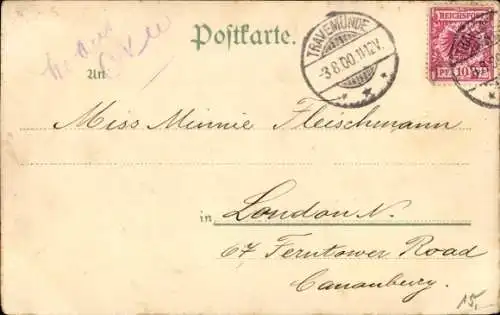 Postkarte.
TRAVEMÜNDE
-3.8.00.11-12V.
REICHSPOST
10
An
Miss Minnie Fleischmann
in London N.
67 Ferntower Road
Canonbury.
15.-